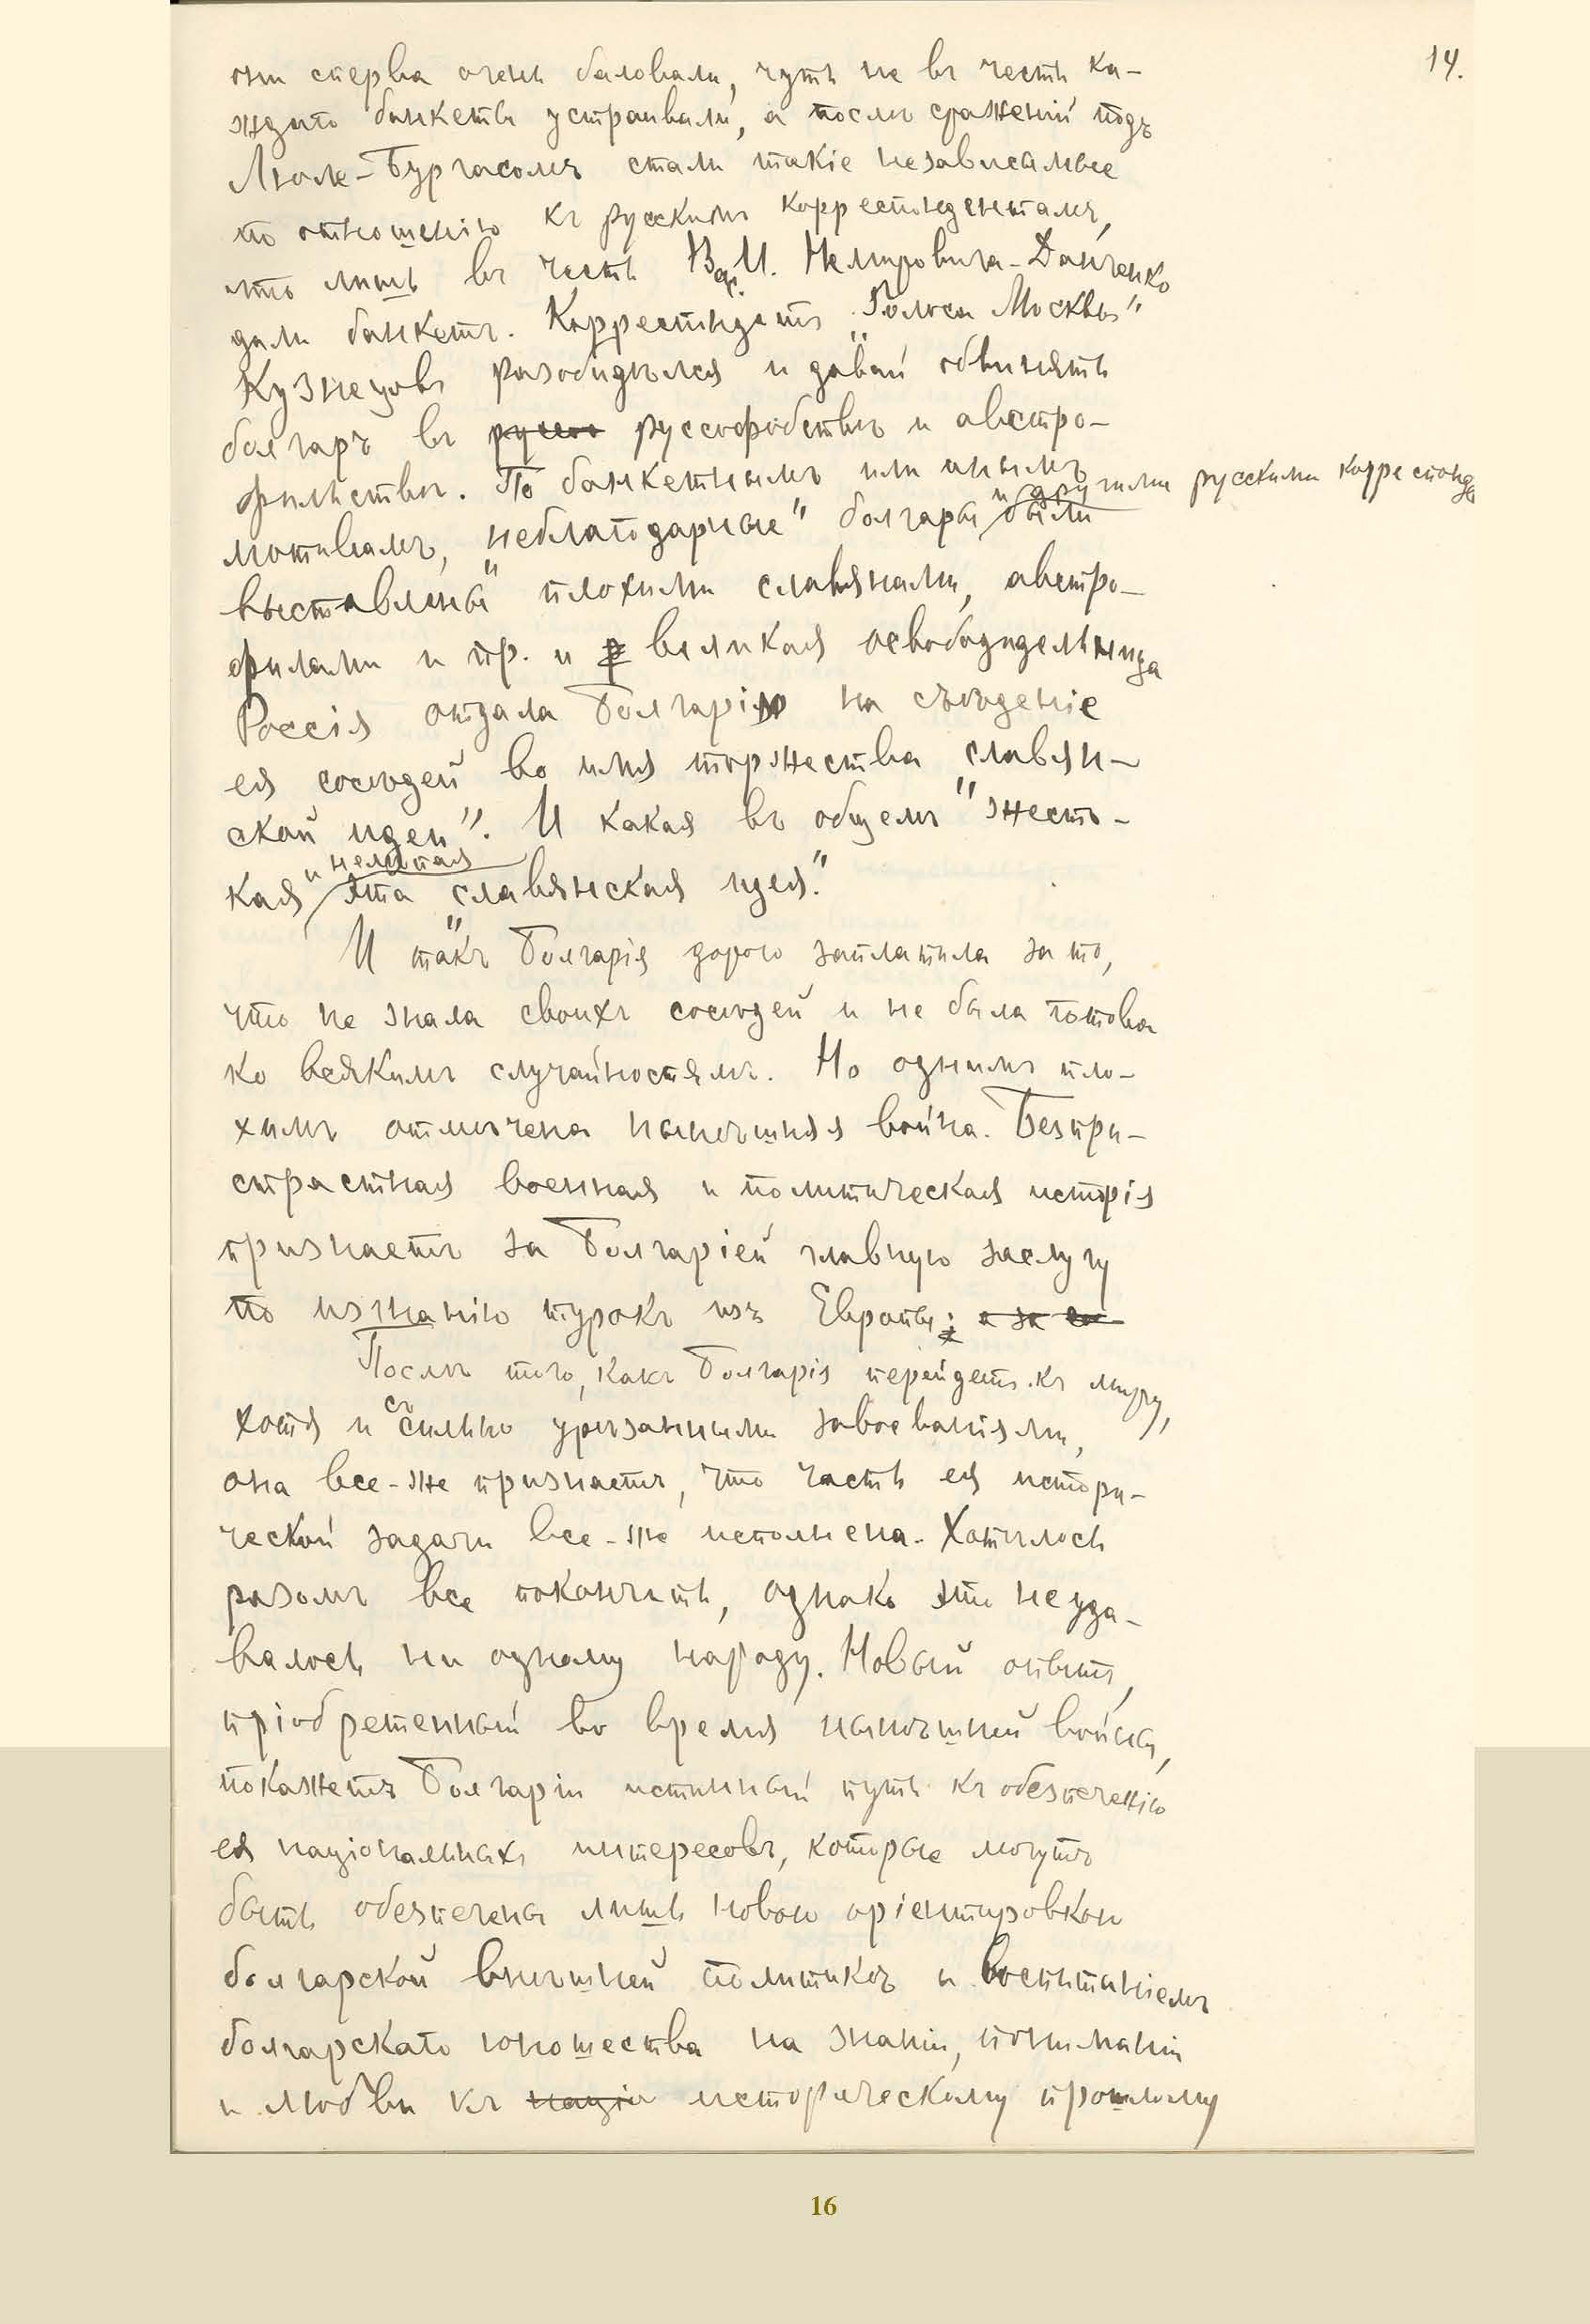 14.
они сперва очень баловали, чуть не въ честь ка-
ждаго банкеты устраивали, а послѣ сраженій подъ
Люле-Бургасомъ стали такіе независимые
по отношенію къ русскимъ корреспондентамъ,
что лишь въ честь Вас. И. Немировича-Данченко
дали банкетъ. Корреспондетъ „Голоса Москвы"
Кузнецовъ разобидѣлся и давай обвинять
болгаръ въ руссофобствѣ и австро-
фильствѣ. По банкетнымъ или инымъ
и другими русскими корреспонде
мотивамъ, „неблагодарные" болгары были
выставлены плохими славянами, австро-
филами и пр. и великая освободидельница
Россія отдала Болгарію на съѣденіе
ея сосѣдей во имя торжества „славян-
ской идеи". И какая въ общемъ жесто-
и нелѣпая
кая эта „славянская идея."
И такъ Болгарія дорого заплатила за то,
что не знала своихъ сосѣдей и не была готова
ко всякимъ случайностямъ. Не однимъ пло-
химъ отмѣчена нынѣшняя война. Безпри-
страстная военная и политическая исторія
признаетъ за Болгаріей главную заслугу
по изгнанію турокъ изъ Европы; а за ея
Послѣ того, какъ Болгарія перейдетъ къ миру,
хотя и съ сильно урѣзанными завоеваніями,
она все-же признаетъ, что часть ея истори-
ческой задачи все-же исполнена. Хотѣлось
разомъ все покончить, однако это не уда-
валось ни одному народу. Новый опытъ,
пріобретенный во время нынѣшней войны,
покажетъ Болгаріи истинный путь къ обезпеченію
ея національныхъ интересовъ, которые могутъ
быть обезпечены лишь новою оріентировкою
болгарской внѣшней политикѣ и воспитаніемъ
болгарскаго юношества на знаніи, пониманіи
и любви къ націо историческому прошлому
16